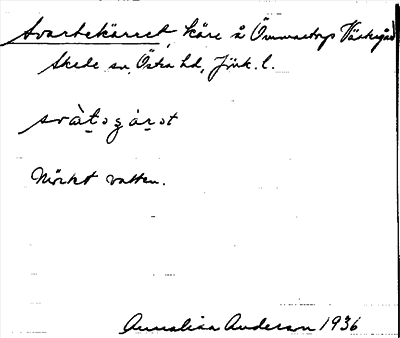 Svartekärret, kärr å Ömmestorps Västergård
Skede sn, Östra hd, Jönk. l.
svàtəʒárət
Mörkt vatten.
Annalisa Anderson 1936